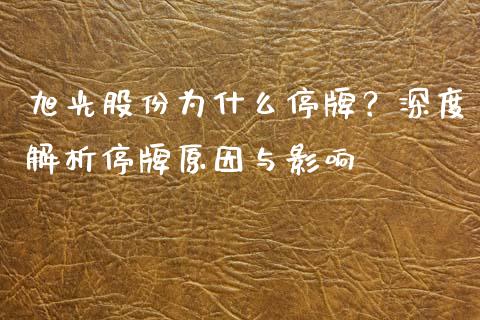 旭光股份为什么停牌？深度
解析停牌原因与影响